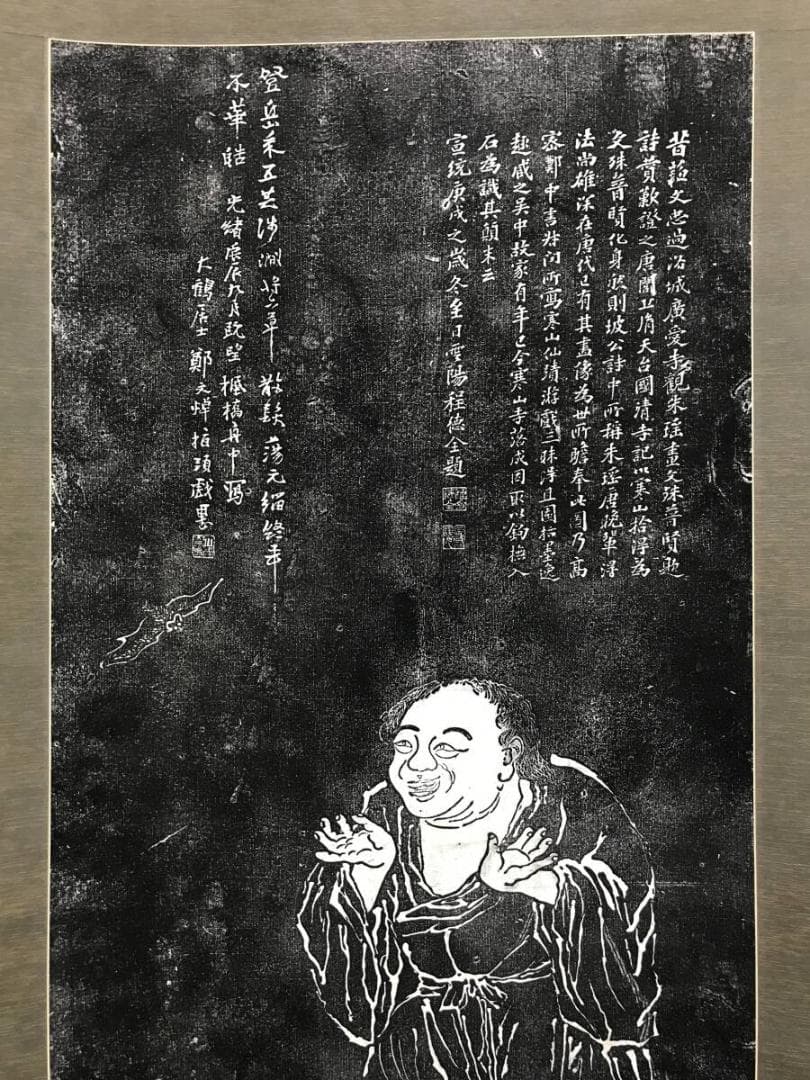 昔蘇文忠過洛城廣愛寺觀朱瑤畫文殊普賢題
詩贊歎證之唐閭丘胤天台國清寺記以寒山拾得為
文殊普賢化身然則坡公詩中所稱朱瑤唐晚輩得
法尚雄深在唐代已有其畫傳為世所瞻奉此圖乃高
密鄭中書叔問所寫寒山仙蹟游戲三昧得且園指墨逸
趣藏之吳中故家有年已今寒山寺落成因取以鉤撫入
石為識其顛末云
宣統庚戌之歲冬至日雲陽程德全題
登岳采五芝涉澗將六草 散髮蕩元緇終年
不華皓 光緒庚辰九月既望楓橋舟中寫
大鶴居士鄭文焯指頭戲墨